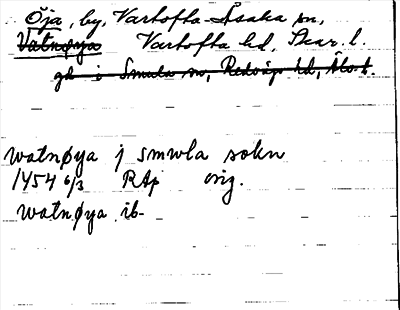 Öja, by, Vartofta-Åsaka sn,
Vatnøya Vartofta hd, Skar. l.
gd i Smula sn, Redvägs hd, Älvsb.
watnøya j smwla sokn
1454 6/3 RAp orig.
watnøya ib-